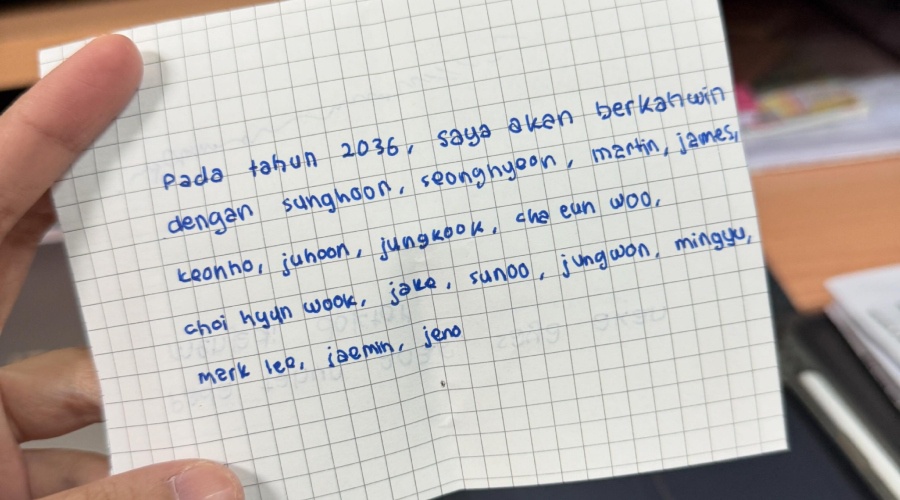 Pada tahun 2036, saya akan berkahwin
dengan sunghoon, seonghyeon, martin, james,
keonho, juhoon, jungkook, cha eun woo,
choi hyun wook, jake, sunoo, jungwon, mingyu,
mark lee, jaemin, jeno